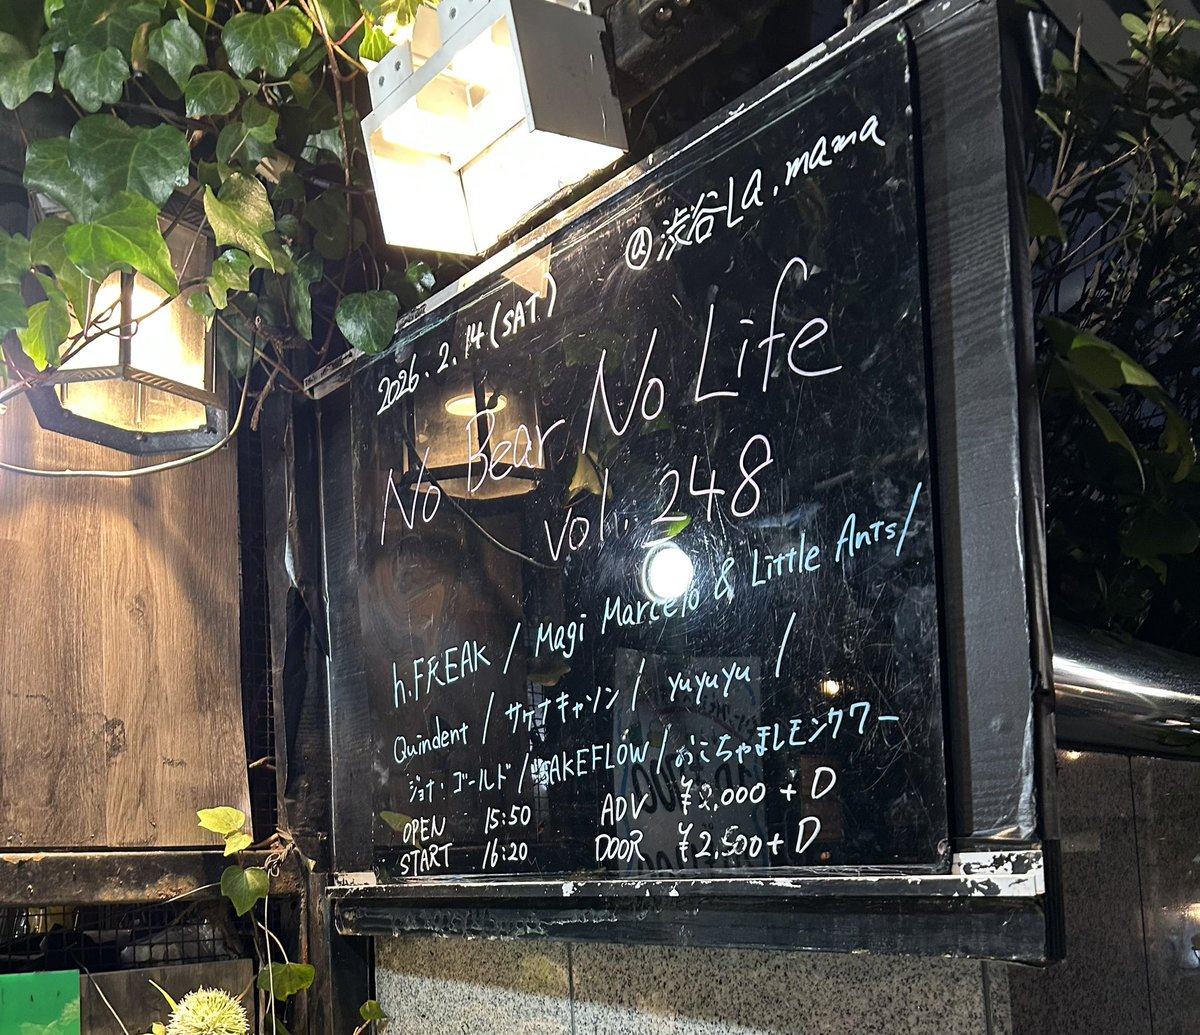 @渋谷La.mama
2026.2.14(SAT)
No Bear No Life
vol.248
h.FREAK / Magi Marcelo & Little Ants/
Quindent / サケナキャソン / yuyuyu /
ジョナ・ゴールド / WAKEFLOW / おこちゃまレモンクワー
OPEN 15:50 ADV ¥2,000 + D
START 16:20 DOOR ¥2,500+D